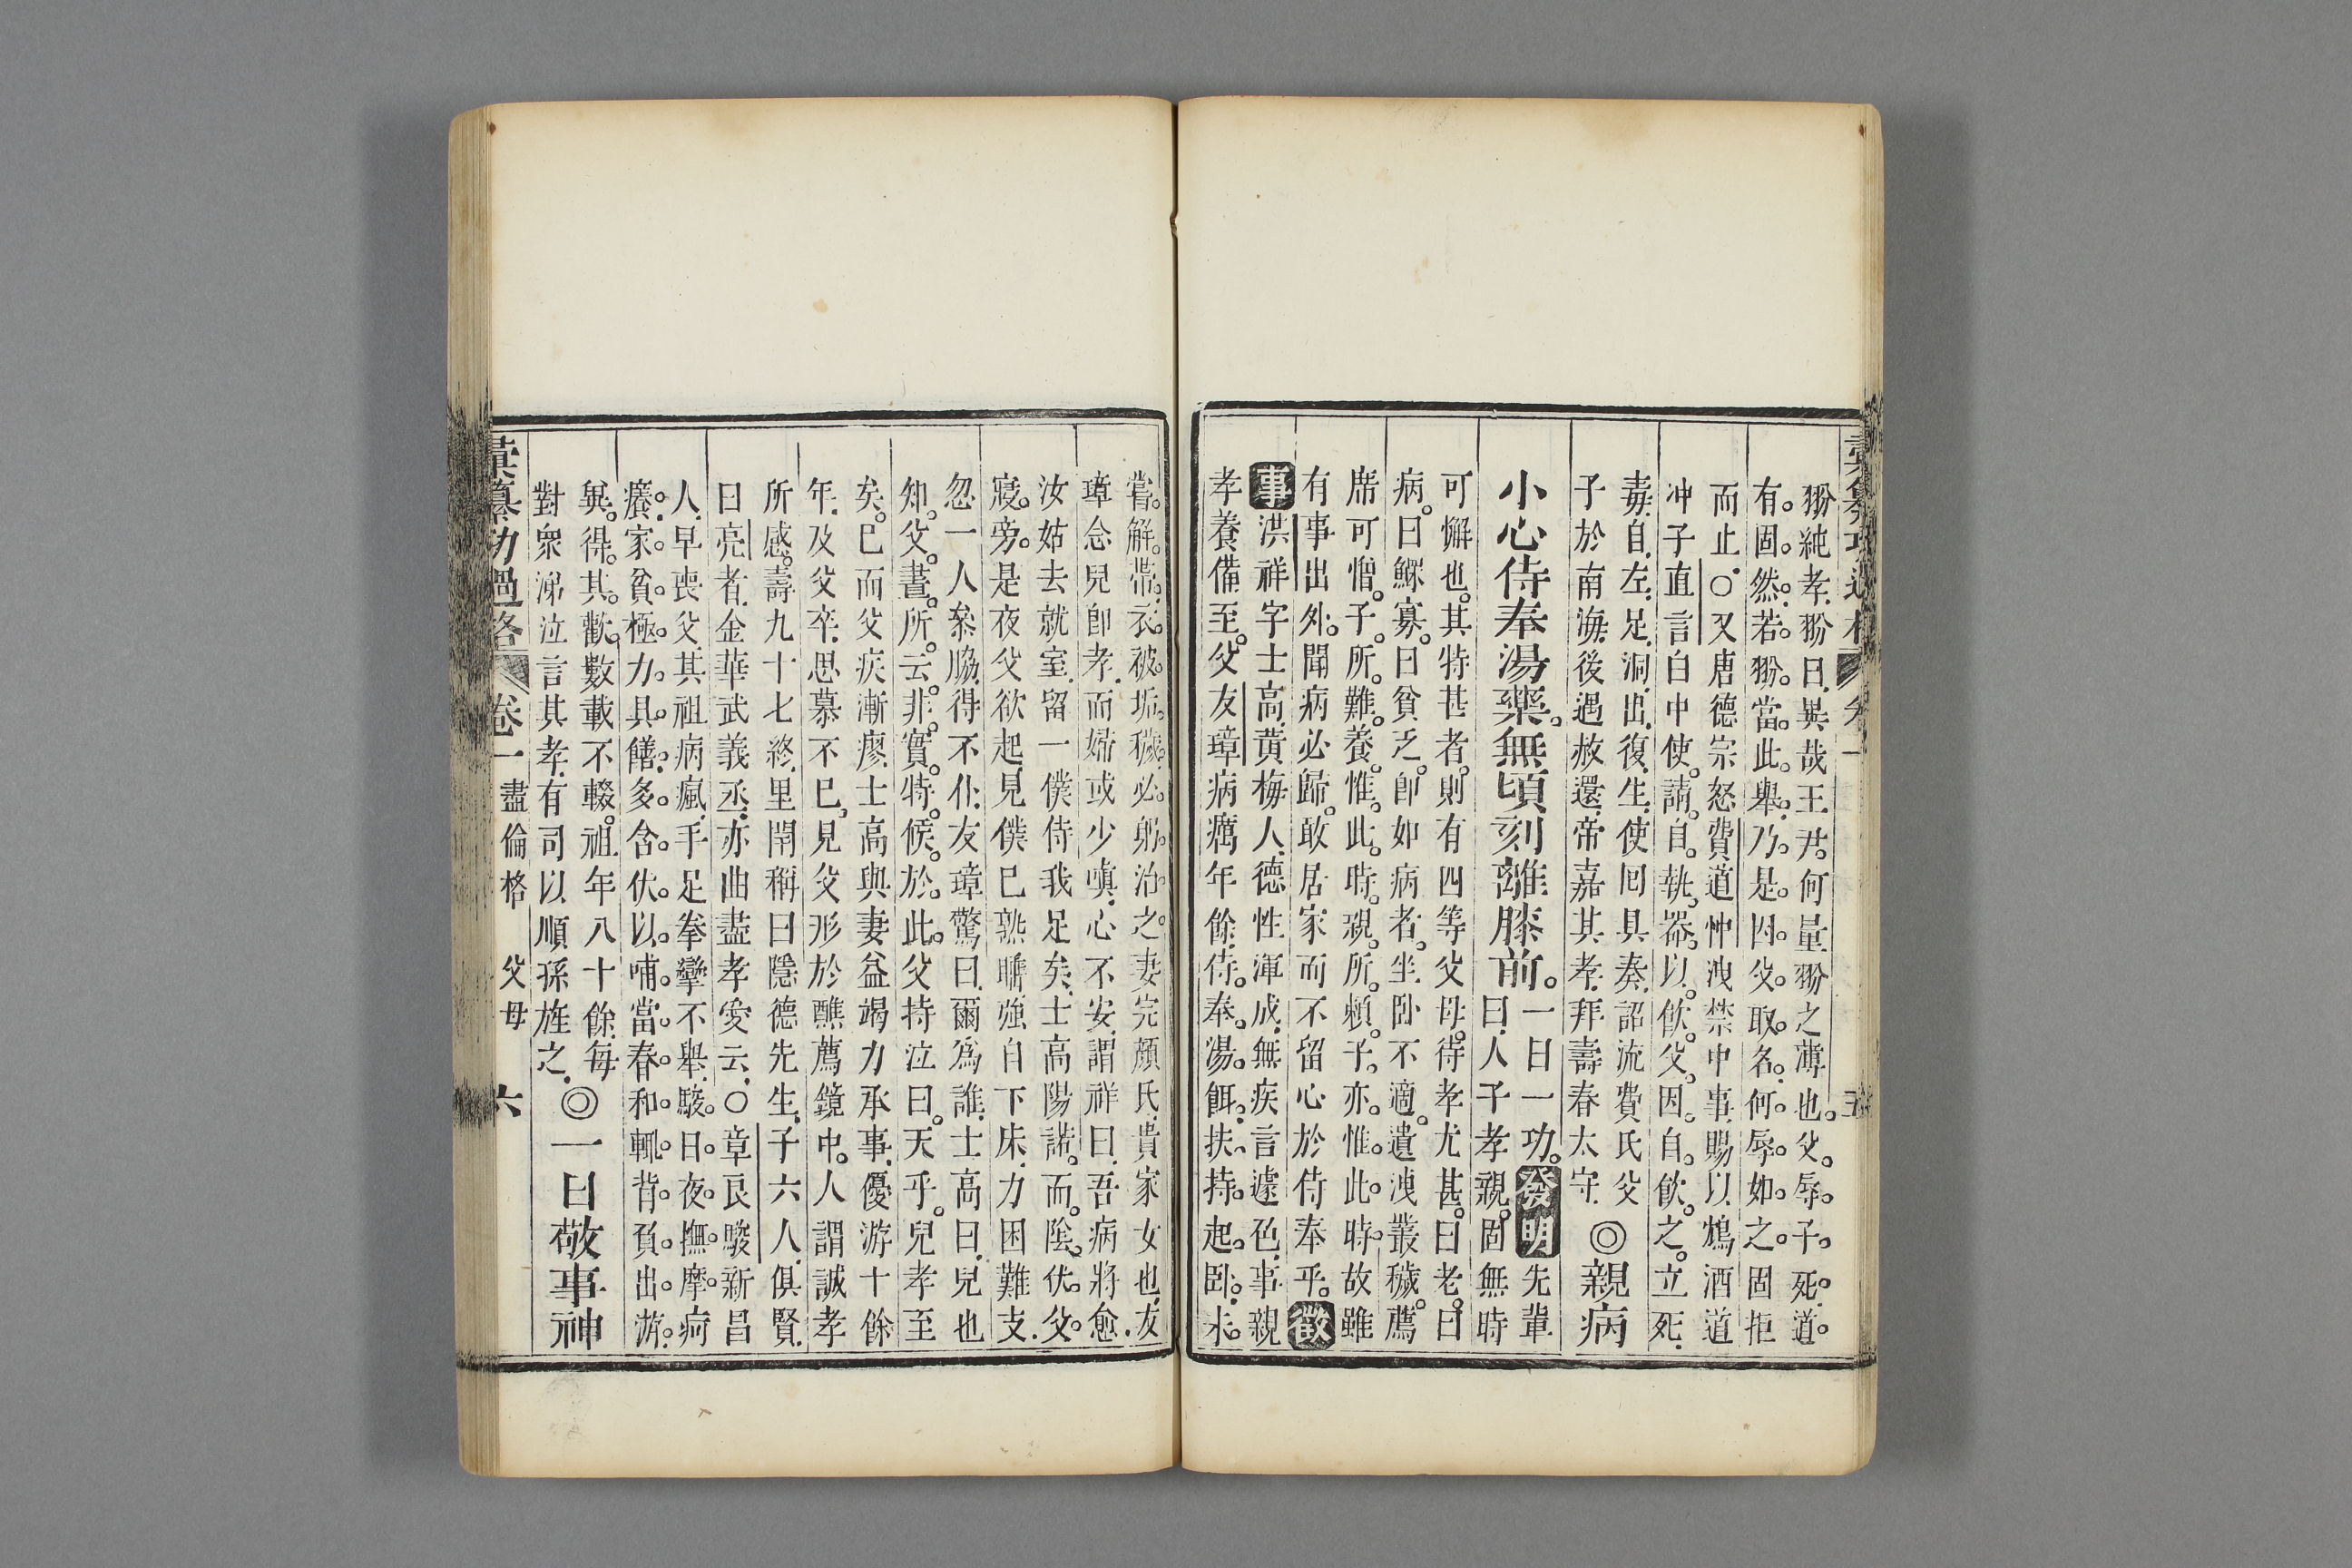 翂純孝翂曰異哉王君何量翂之薄也父辱子死道
有固然若翂當此舉乃是因父取名何辱如之固拒
而止○又唐德宗怒費道忡洩禁中事賜以鴆酒道
冲子直言白中使請自執器以飲父因自飲之立死
毒自左足洞出復生使回具奏詔流費氏父
子於南海後遇赦還帝嘉其孝拜壽春太守◎親病
小心侍奉湯藥無頃刻離膝前一日一功發明先輩
曰人子孝親固無時
可懈也其特甚者則有四等父母待孝尤甚曰老曰
病曰鰥寡曰貧乏卽如病者坐卧不適遺洩叢穢薦
席可憎子所難養惟此時親所賴子亦惟此時故雖
有事出外聞病必歸敢居家而不留心於侍奉乎徵
事洪祥字士高黃梅人德性渾成無疾言遽色事親
孝養備至父友璋病癘年餘侍奉湯餌扶持起卧未
嘗解帶衣被垢穢必躬治之妻完顏氏貴家女也友
璋念兒卽孝而婦或少嗔心不安謂祥曰吾病將愈
汝姑去就室留一僕侍我足矣士高陽諾而陰伏父
寢旁是夜父欲起見僕已熟睡強自下床力困難支
忽一人叅脇得不仆友璋驚曰爾爲誰士高曰兒也
知父晝所云非實特候於此父持泣曰天乎兒孝至
矣已而父疾漸瘳士高與妻益竭力承事優游十餘
年及父卒思慕不已見父形於醮薦鏡中人謂誠孝
所感壽九十七終里閈稱曰隱德先生子六人俱賢
曰亮者金華武義丞亦曲盡孝愛云○章良駿新昌
人早喪父其祖病瘋手足拳攣不舉駿日夜撫摩疴
癢家貧極力具饍多含伏以哺當春和輒背負出游
異得其歡數載不輟祖年八十餘每
對衆涕泣言其孝有司以順孫旌之◎一日敬事神
彙纂功過格 卷一 盡倫格 父母 六